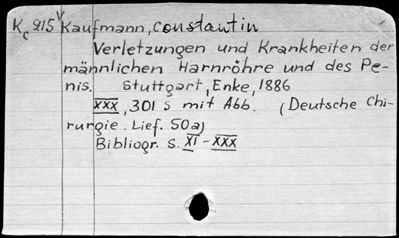 Kc 915 v Kaufmann, Constantin
Verletzungen und Krankheiten der
männlichen Harnröhre und des Pe-
nis. Stuttgart, Enke, 1886
XXX, 301 S mit Abb. (Deutsche Chi-
rurgie. Lief. 50a)
Bibliogr. S. XI-XXX